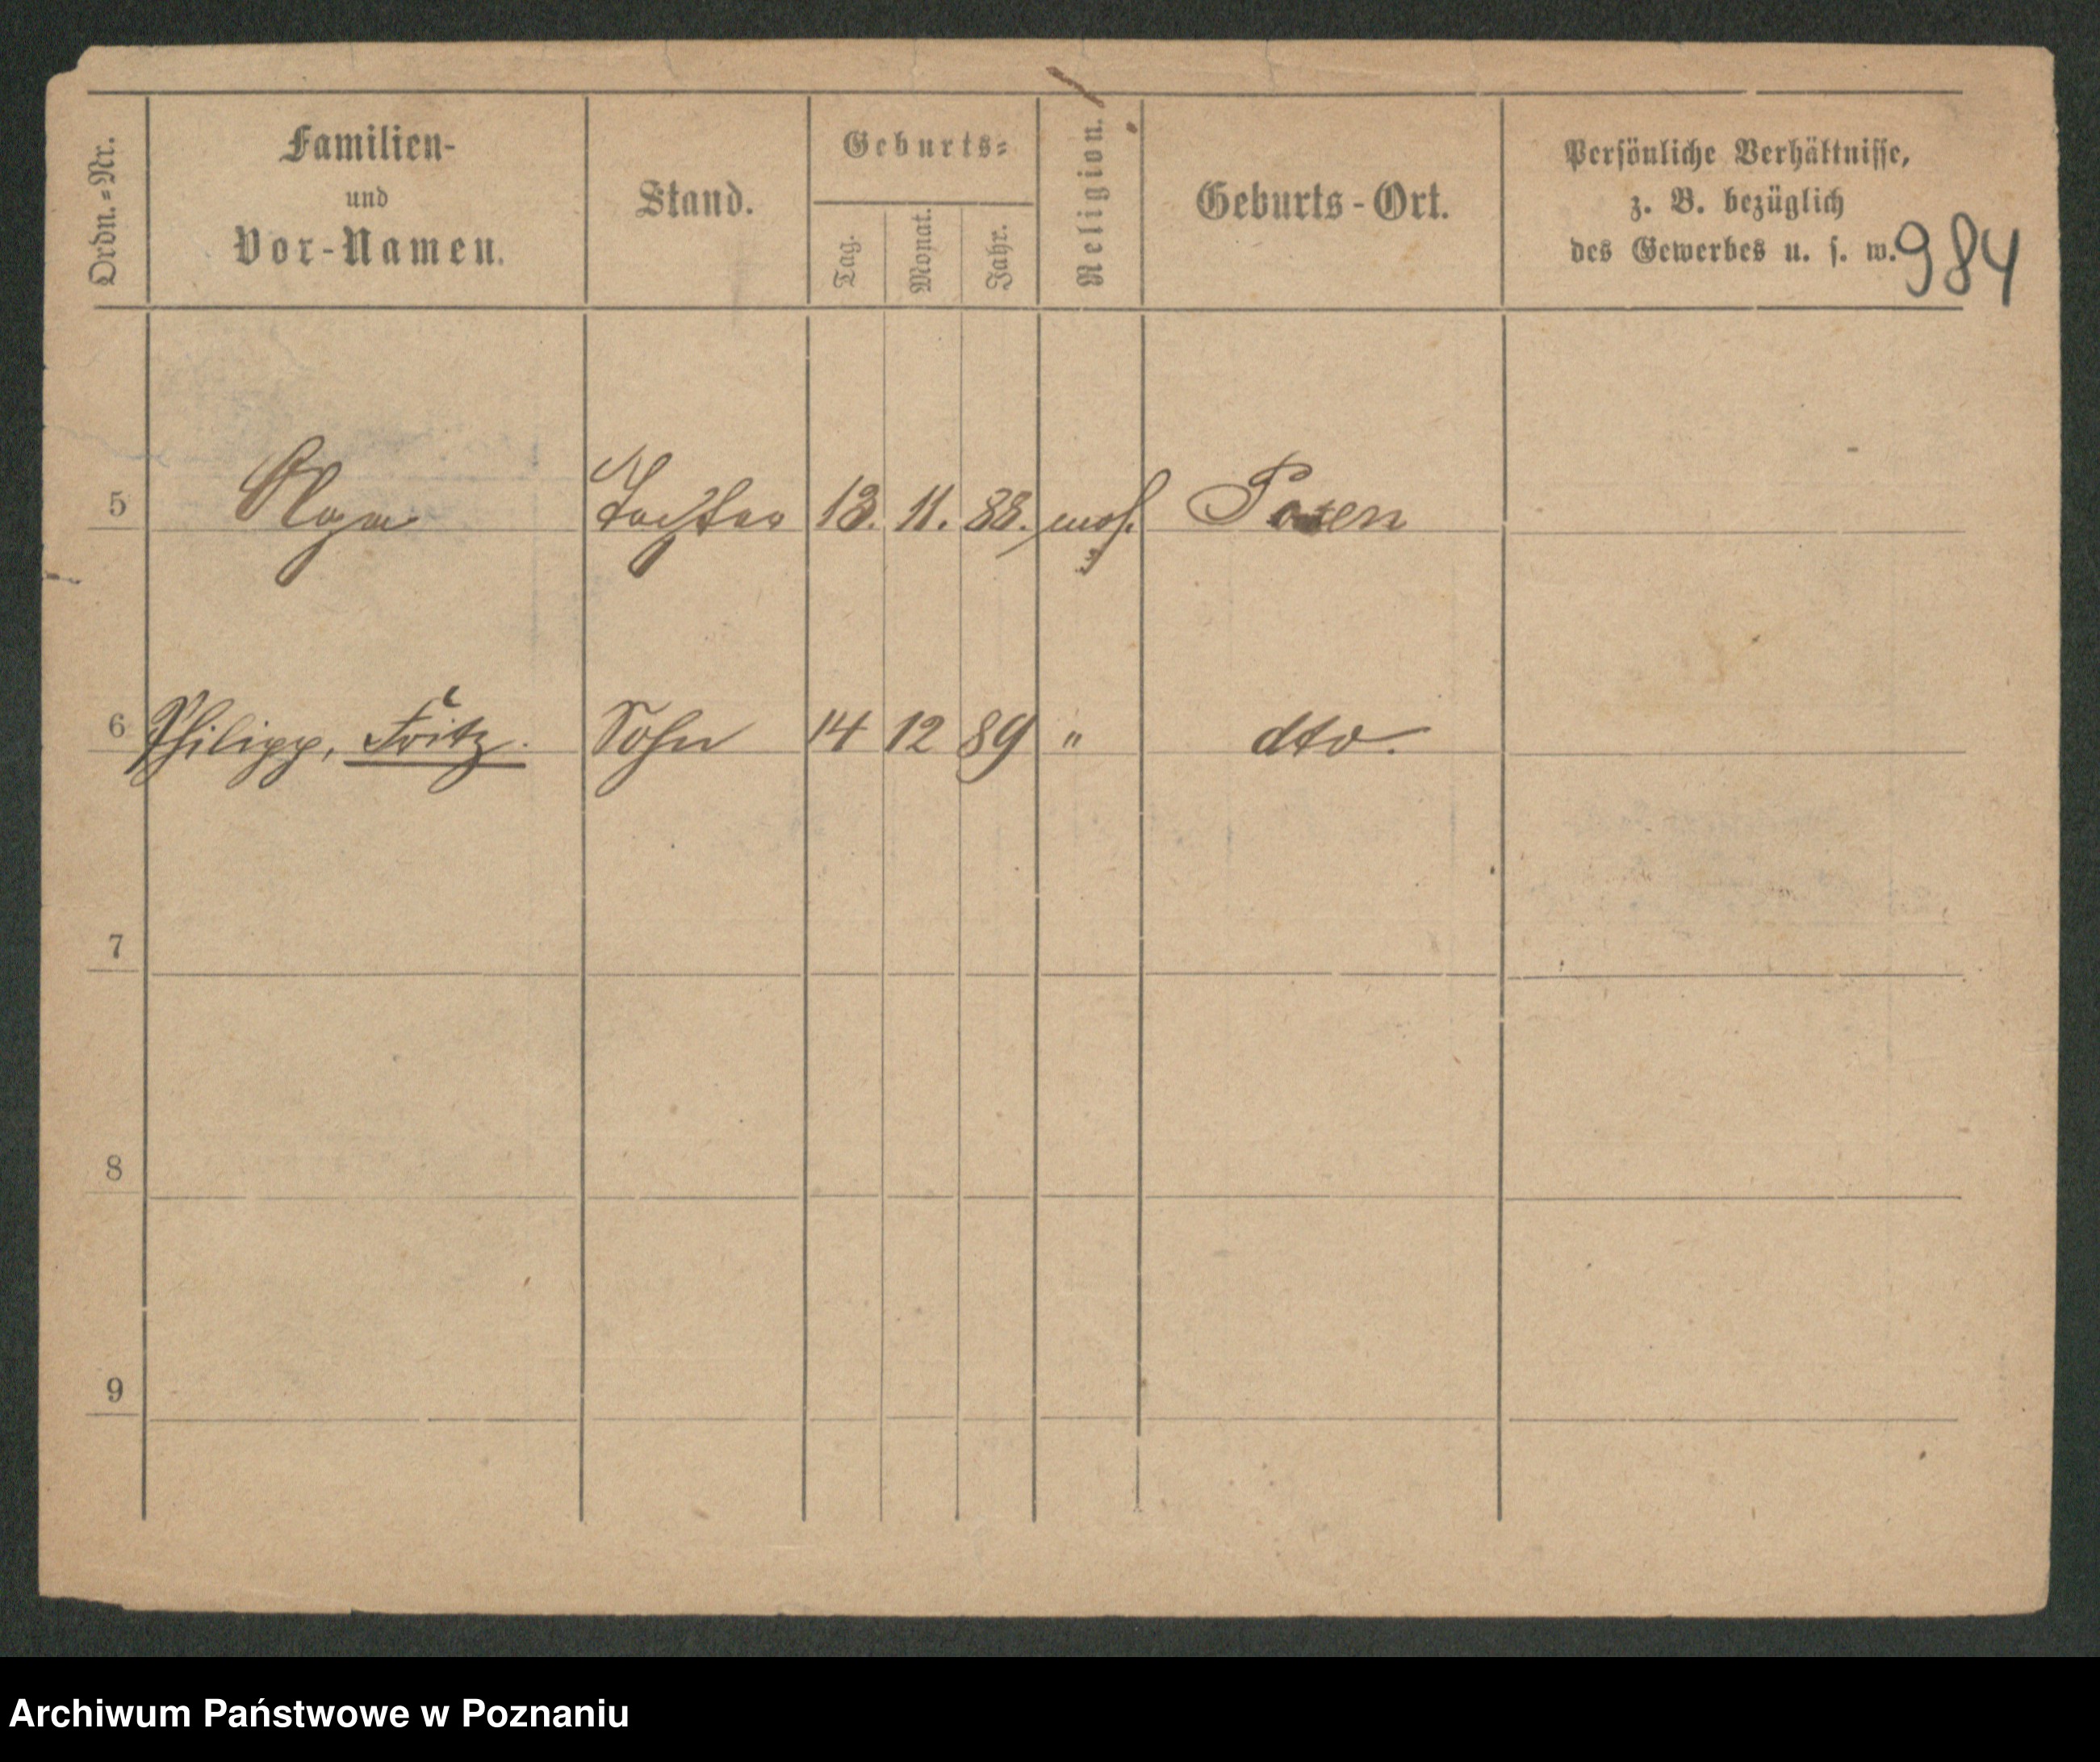 Ordn.=Nr.
Familien-
und
Vor-Namen.
Stand.
Geburts=
Tag.
Monat.
Jahr.
Religion.
Geburts-Ort.
Persönliche Verhältnisse,
z. B. bezüglich
des Gewerbes u. s. w.
984
5 Olga Tochter 13. 11. 88. mos. Posen
6 Philipp, Fritz. Sohn 14 12 89 " dto.
7
8
9
Archiwum Państwowe w Poznaniu